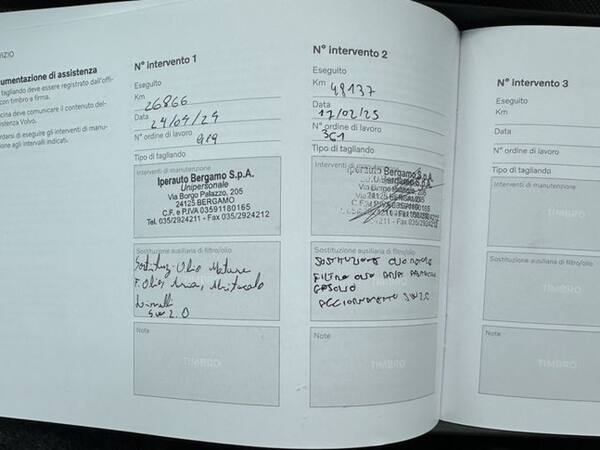 IZIO
umentazione di assistenza
tagliando deve essere registrato dall'offi-
con timbro e firma.
cina deve comunicare il contenuto del-
sistenza Volvo.
rdarsi di eseguire gli interventi di manu-
one agli intervalli indicati.
N° intervento 1
Eseguito
Km 26866
Data 24/04/24
N° ordine di lavoro 919
Tipo di tagliando
Interventi di manutenzione
Iperauto Bergamo S.p.A.
Unipersonale
Via Borgo Palazzo, 205
24125 BERGAMO
C.F. e P.IVA 03591180165
Tel. 035/2924211 - Fax 035/2924212
Sostituzione ausiliaria di filtro/olio
Olio Motore
F. Olio, Aria,
SW 2.0
Note
TIMBRO
N° intervento 2
Eseguito
Km 48137
Data 17/02/25
N° ordine di lavoro 361
Tipo di tagliando
Interventi di manutenzione
Iperauto Bergamo S.p.A.
Unipersonale
Via Borgo Palazzo, 205
24125 BERGAMO
035/2924211 - Fax 035/2924212
Sostituzione ausiliaria di filtro/olio
SOSTITUZIONE OLIO MOTORE
FILTRO OLIO ARIA
GASOLIO
AGGIORNAMENTO SW 2.0
Note
TIMBRO
N° intervento 3
Eseguito
Km
Data
N° ordine di lavoro
Tipo di tagliando
Interventi di manutenzione
TIMBRO
Sostituzione ausiliaria di filtro/olio
TIMBRO
Note
TIMBRO